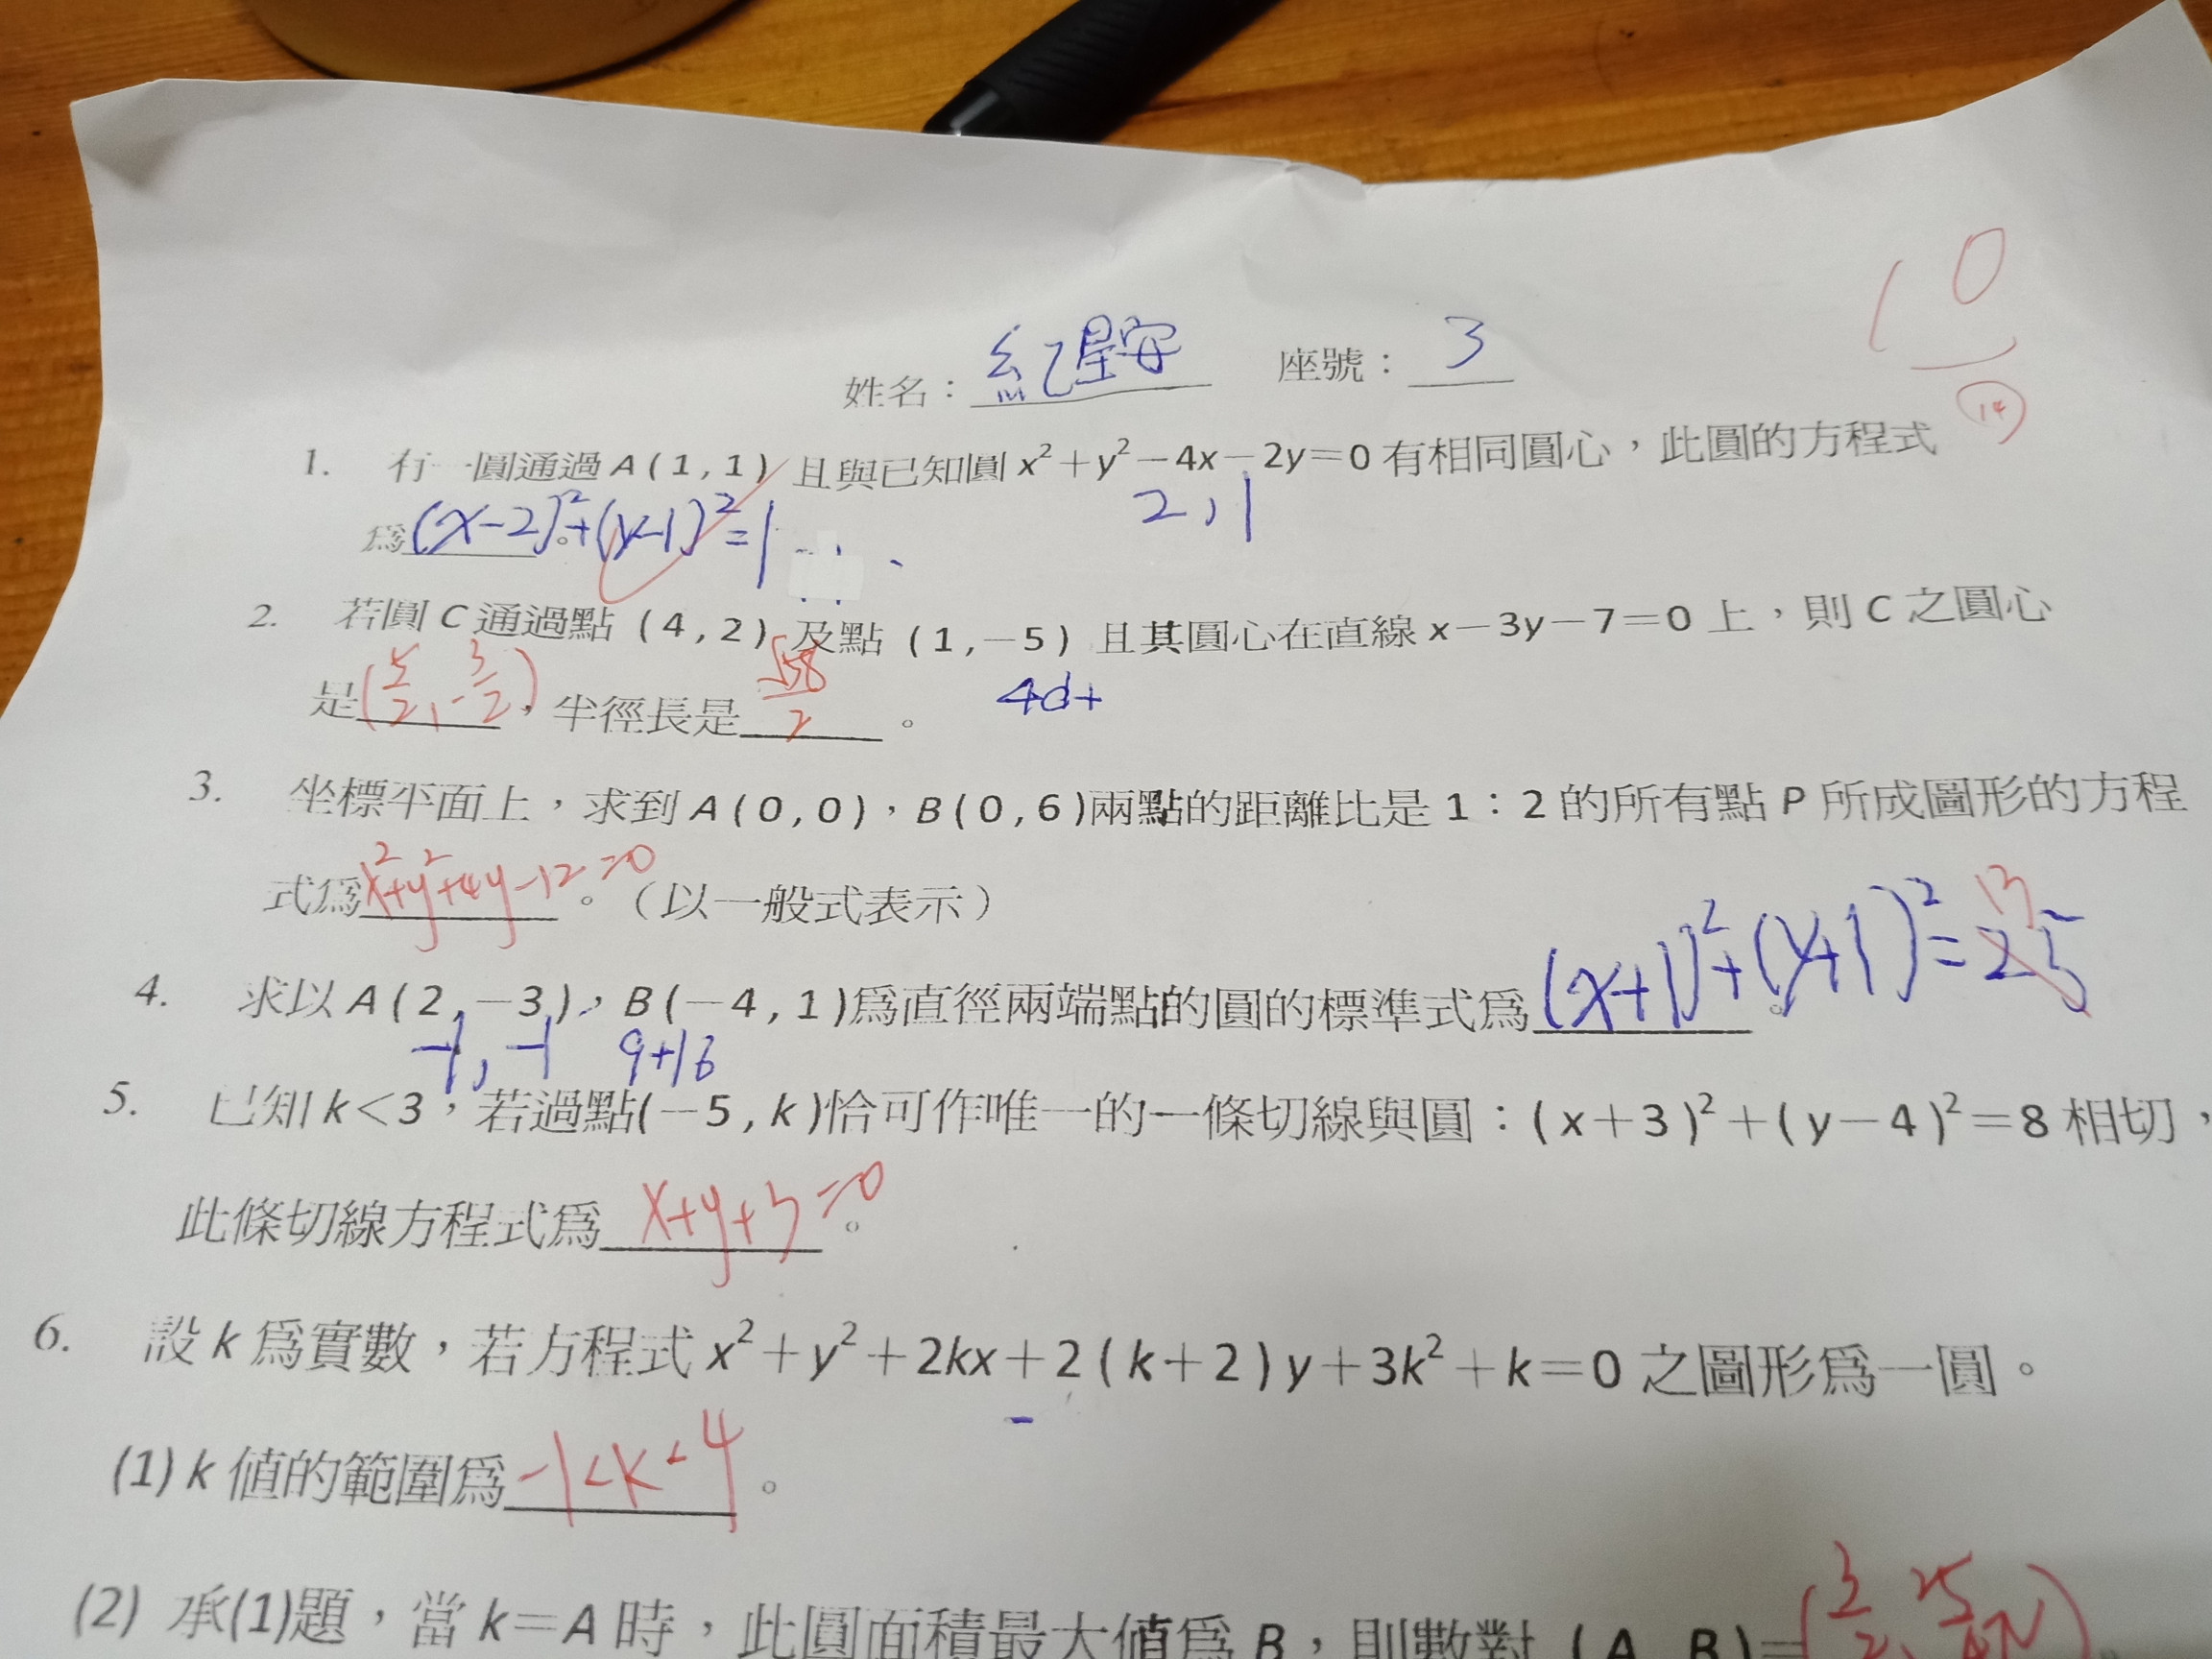 10
14
姓名：紀星宇 座號：3
1. 有一圓通過 A(1,1) 且與已知圓 x²+y²−4x−2y=0 有相同圓心，此圓的方程式
2,1
為(x-2)²+(y-1)²=1。
2. 若圓 C 通過點 (4,2) 及點 (1,−5) 且其圓心在直線 x−3y−7=0 上，則 C 之圓心
4d+
是(5/2,-3/2)，半徑長是√58/2。
3. 坐標平面上，求到 A(0,0)，B(0,6)兩點的距離比是 1：2 的所有點 P 所成圖形的方程
式為x²+y²+4y-12=0。（以一般式表示）
4. 求以 A(2,−3)，B(−4,1)為直徑兩端點的圓的標準式為(x+1)²+(y+1)²=25。
13
-1,-1 9+16
5. 已知 k<3，若過點(−5,k)恰可作唯一的一條切線與圓：(x+3)²+(y−4)²=8 相切，
此條切線方程式為x+y+3=0。
6. 設 k 為實數，若方程式 x²+y²+2kx+2(k+2)y+3k²+k=0 之圖形為一圓。
(1) k 值的範圍為-1<k<4。
(2) 承(1)題，當 k=A 時，此圓面積最大值為 B，則數對 (A,B)=(3/2,25/4π)。